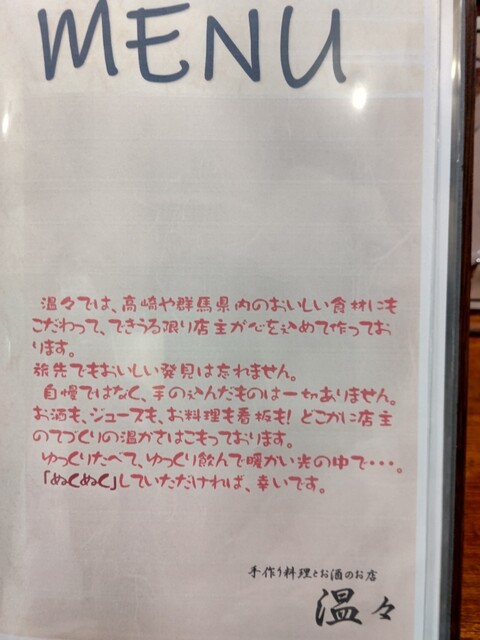 MENU
温々では、高崎や群馬県内のおいしい食材にも
こだわって、できうる限り店主が心を込めて作ってお
ります。
旅先でもおいしい発見は忘れません。
自慢ではなく、手の込んだものは一切ありません。
お酒も、ジュースも、お料理も看板も!どこかに店主
のてづくりの温かさはこもっております。
ゆっくりたべて、ゆっくり飲んで暖かい光の中で・・・。
「ぬくぬく」していただければ、幸いです。
手作り料理とお酒のお店
温々